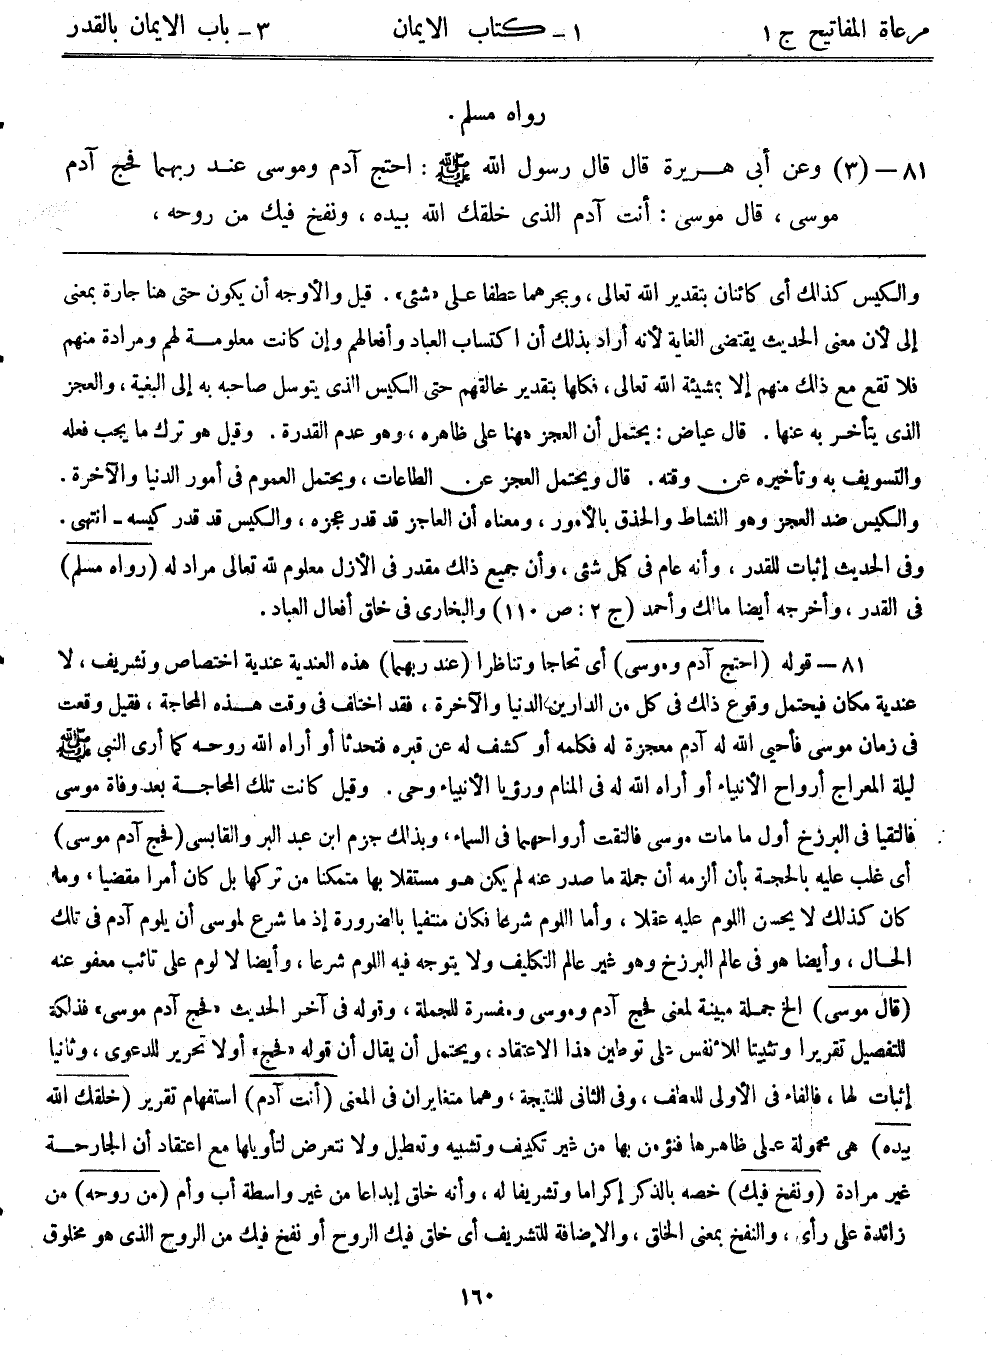 مرعاة المفاتيح ج ١
١ - كتاب الايمان
٣ - باب الايمان بالقدر
رواه مسلم.
٨١ – (٣) وعن أبى هريرة قال قال رسول الله ﷺ : احتج آدم وموسى عند ربهما فحج آدم
موسى ، قال موسى : أنت آدم الذى خلقك الله بيده ، ونفخ فيك من روحه ،
والكيس كذلك أى كائنان بتقدير الله تعالى ، وبجرهما عطفا على «شئى». قيل والأوجه أن يكون حتى هنا جارة بمعنى
إلى لأن معنى الحديث يقتضى الغاية لأنه أراد بذلك أن اكتساب العباد وأفعالهم وإن كانت معلومة لهم ومرادة منهم
فلا تقع مع ذلك منهم إلا بمشيئة الله تعالى ، فكلها بتقدير خالقهم حتى الكيس الذى يتوسل صاحبه به إلى البغية ، والعجز
الذى يتأخر به عنها. قال عياض : يحتمل أن العجز ههنا على ظاهره ، وهو عدم القدرة. وقيل هو ترك ما يجب فعله
والتسويف به وتأخيره عن وقته. قال ويحتمل العجز عن الطاعات ، ويحتمل العموم فى أمور الدنيا والآخرة.
والكيس ضد العجز وهو النشاط والحذق بالأمور ، ومعناه أن العاجز قد قدر عجزه ، والكيس قد قدر كيسه - انتهى.
وفى الحديث إثبات للقدر ، وأنه عام فى كل شئى ، وأن جميع ذلك مقدر فى الأزل معلوم لله تعالى مراد له (رواه مسلم)
فى القدر ، وأخرجه أيضا مالك وأحمد (ج ٢ : ص ١١٠) والبخارى فى خلق أفعال العباد.
٨١ – قوله (احتج آدم وموسى) أى تحاجا وتناظرا (عند ربهما) هذه العندية عندية اختصاص وتشريف ، لا
عندية مكان فيحتمل وقوع ذلك فى كل من الدارين الدنيا والآخرة ، فقد اختلف فى وقت هذه المحاجة ، فقيل وقعت
فى زمان موسى فأحيى الله له آدم معجزة له فكلمه أو كشف له عن قبره فتحدثا أو أراه الله روحه كما أرى النبى ﷺ
ليلة المعراج أرواح الأنبياء أو أراه الله له فى المنام ورؤيا الأنبياء وحى. وقيل كانت تلك المحاجة بعد وفاة موسى
فالتقيا فى البرزخ أول ما مات موسى فالتقت أرواحهما فى السماء ، وبذلك جزم ابن عبد البر والقابسى (فحج آدم موسى)
أى غلب عليه بالحجة بأن ألزمه أن جملة ما صدر عنه لم يكن هو مستقلا بها متمكنا من تركها بل كان أمرا مقضيا ، وما
كان كذلك لا يحسن اللوم عليه عقلا ، وأما اللوم شرعا فكان منتفيا بالضرورة إذ ما شرع لموسى أن يلوم آدم فى تلك
الحال ، وأيضا هو فى عالم البرزخ وهو غير عالم التكليف ولا يتوجه فيه اللوم شرعا ، وأيضا لا لوم على تائب معفو عنه
(قال موسى) الخ جملة مبينة لمعنى فحج آدم وموسى ومفسرة للجملة ، وقوله فى آخر الحديث «فحج آدم موسى» فذلكة
للتفصيل تقريرا وتثبيتا للأنفس على توطين هذا الاعتقاد ، ويحتمل أن يقال أن قوله «فحج» أولا تحرير للدعوى ، وثانيا
إثبات لها ، فالفاء فى الأولى للعطف ، وفى الثانى للنتيجة ، وهما متغايران فى المعنى (أنت آدم) استفهام تقرير (خلقك الله
بيده) هى محمولة على ظاهرها فنؤمن بها من غير تكييف وتشبيه وتعطيل ولا نتعرض لتأويلها مع اعتقاد أن الجارحة
غير مرادة (ونفخ فيك) خصه بالذكر إكراما وتشريفا له ، وأنه خلق إبداعا من غير واسطة أب وأم (من روحه) من
زائدة على رأى ، والنفخ بمعنى الخلق ، والإضافة للتشريف أى خلق فيك الروح أو نفخ فيك من الروح الذى هو مخلوق
١٦٠